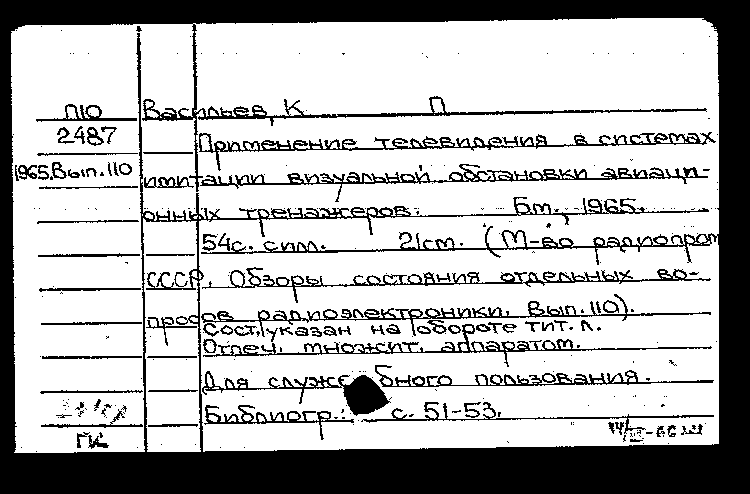 ПЮ Васильев, К П
2487 Применение телевидения в системах
1965,Вып.110 имитации визуальной обстановки авиаци-
онных тренажеров. Бm., 1965.
54с. силл. 21cm. (М-во радиопром
СССР. Обзоры состояния отдельных во-
просов радиоэлектроники. Вып.110).
Сост. указан на обороте тит. л.
Отпеч. множит. аппаратом.
Для служебного пользования.
Библиогр.: с. 51-53.
ПК